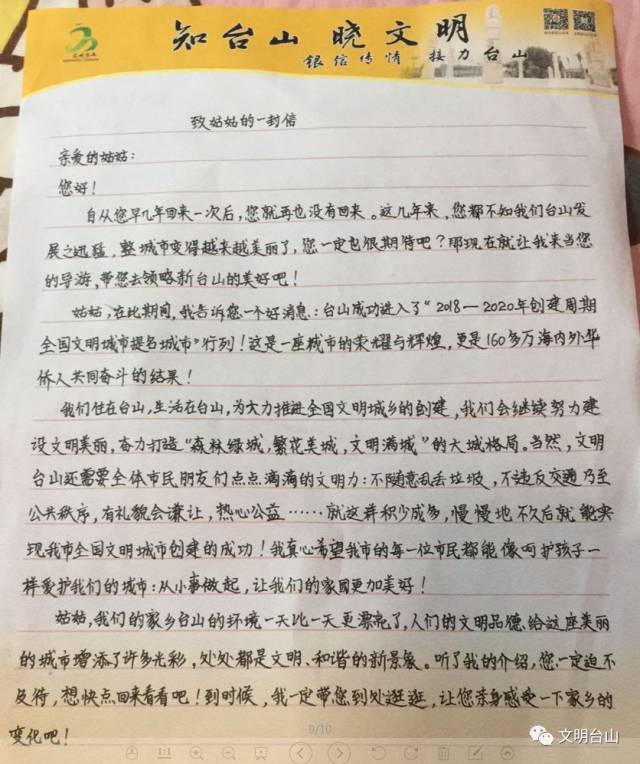 知台山 晓文明
银信传情 接力台山
致姑姑的一封信
亲爱的姑姑：
您好！
自从您早几年回来一次后，您就再也没有回来。这几年来，您都不知我们台山发
展之迅猛，整城市变得越来越美丽了，您一定包很期待吧？那现在就让我来当您
的导游，带您去领略新台山的美好吧！
姑姑，在此期间，我告诉您一个好消息：台山成功进入了“2018—2020年创建周期
全国文明城市提名城市”行列！这是一座城市的荣耀与辉煌，更是160多万海内外华
侨人共同奋斗的结果！
我们住在台山，生活在台山，为大力推进全国文明城乡的创建，我们会继续努力建
设文明美丽，奋力打造“森林绿城，繁花美城，文明满城”的大城格局。当然，文明
台山还需要全体市民朋友们点点滴滴的文明力：不随意乱丢垃圾，不违反交通乃至
公共秩序，有礼貌会谦让，热心公益……就这样积少成多，慢慢地不久后就能实
现我市全国文明城市创建的成功！我真心希望我市的每一位市民都能像呵护孩子一
样爱护我们的城市：从小事做起，让我们的家园更加美好！
姑姑，我们的家乡台山的环境一天比一天更漂亮了，人们的文明品德给这座美丽
的城市增添了许多光彩，处处都是文明、和谐的新景象。听了我的介绍，您一定迫不
及待，想快点回来看看吧！到时候，我一定带您到处逛逛，让您亲身感受一下家乡的
变化吧！
9/10
1:1
文明台山